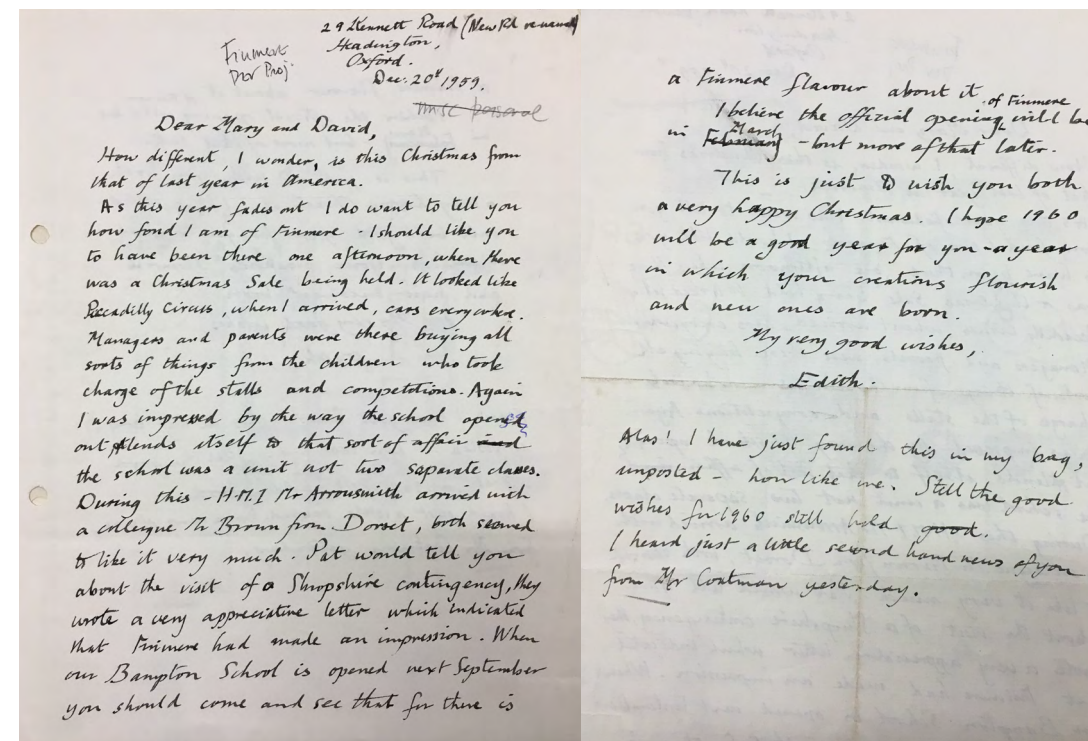 29 Kennett Road (New Rd renamed)
Headington,
Oxford.
Dec: 20th 1959.
Finmere
Dev Proj.
misc personal
Dear Mary and David,
How different, I wonder, is this Christmas from
that of last year in America.
As this year fades out I do want to tell you
how fond I am of Finmere - I should like you
to have been there one afternoon, when there
was a Christmas Sale being held. It looked like
Piccadilly Circus, when I arrived, cars everywhere.
Managers and parents were there buying all
sorts of things from the children who took
charge of the stalls and competitions. Again
I was impressed by the way the school opened
out & lends itself to that sort of affair and
the school was a unit not two separate classes.
During this - H.M.I Mr Arrowsmith arrived with
a colleague Mr from Dorset, both seemed
to like it very much. Pat would tell you
about the visit of a Shropshire contingency, they
wrote a very appreciative letter which indicated
that Finmere had made an impression. When
our Bampton School is opened next September
you should come and see that for there is
a Finmere flavour about it.
I believe the official opening of Finmere will be
in February March - but more of that later.
This is just to wish you both
a very happy Christmas. I hope 1960
will be a good year for you - a year
in which your creations flourish
and new ones are born.
My very good wishes,
Edith.
Alas! I have just found this in my bag,
unposted - how like me. Still the good
wishes for 1960 still hold good.
I heard just a little second hand news of you
from Mr Coatman yesterday.